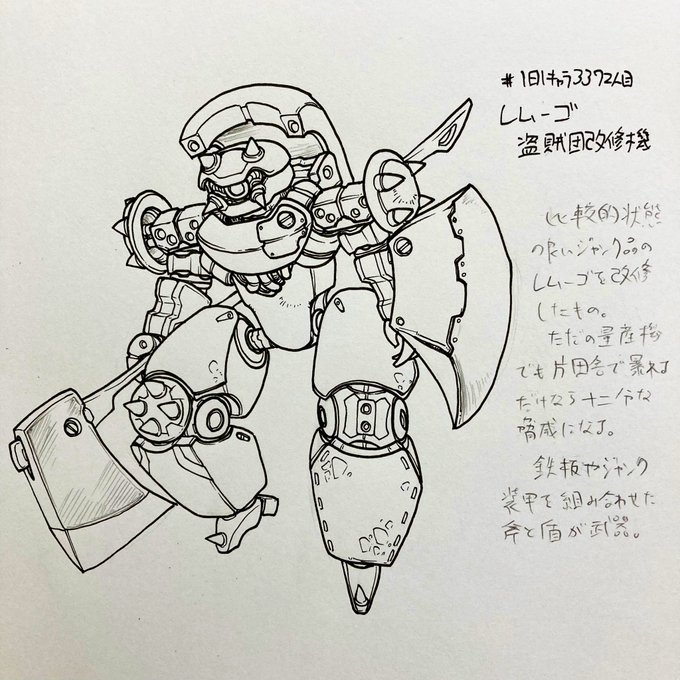 #1日1キャラ3372人目
レムーゴ
盗賊団改修機
比較的状態
の良いジャンク品の
レムーゴを改修
したもの。
ただの量産機
でも片田舎で暴れる
だけなら十二分な
脅威になる。
鉄板やジャンク
装甲を組み合わせた
斧と盾が武器。